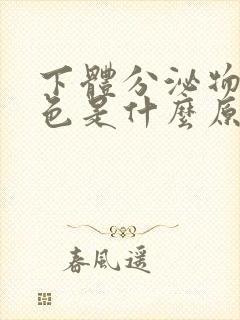 下體分泌物
色是什麼原
春風遥